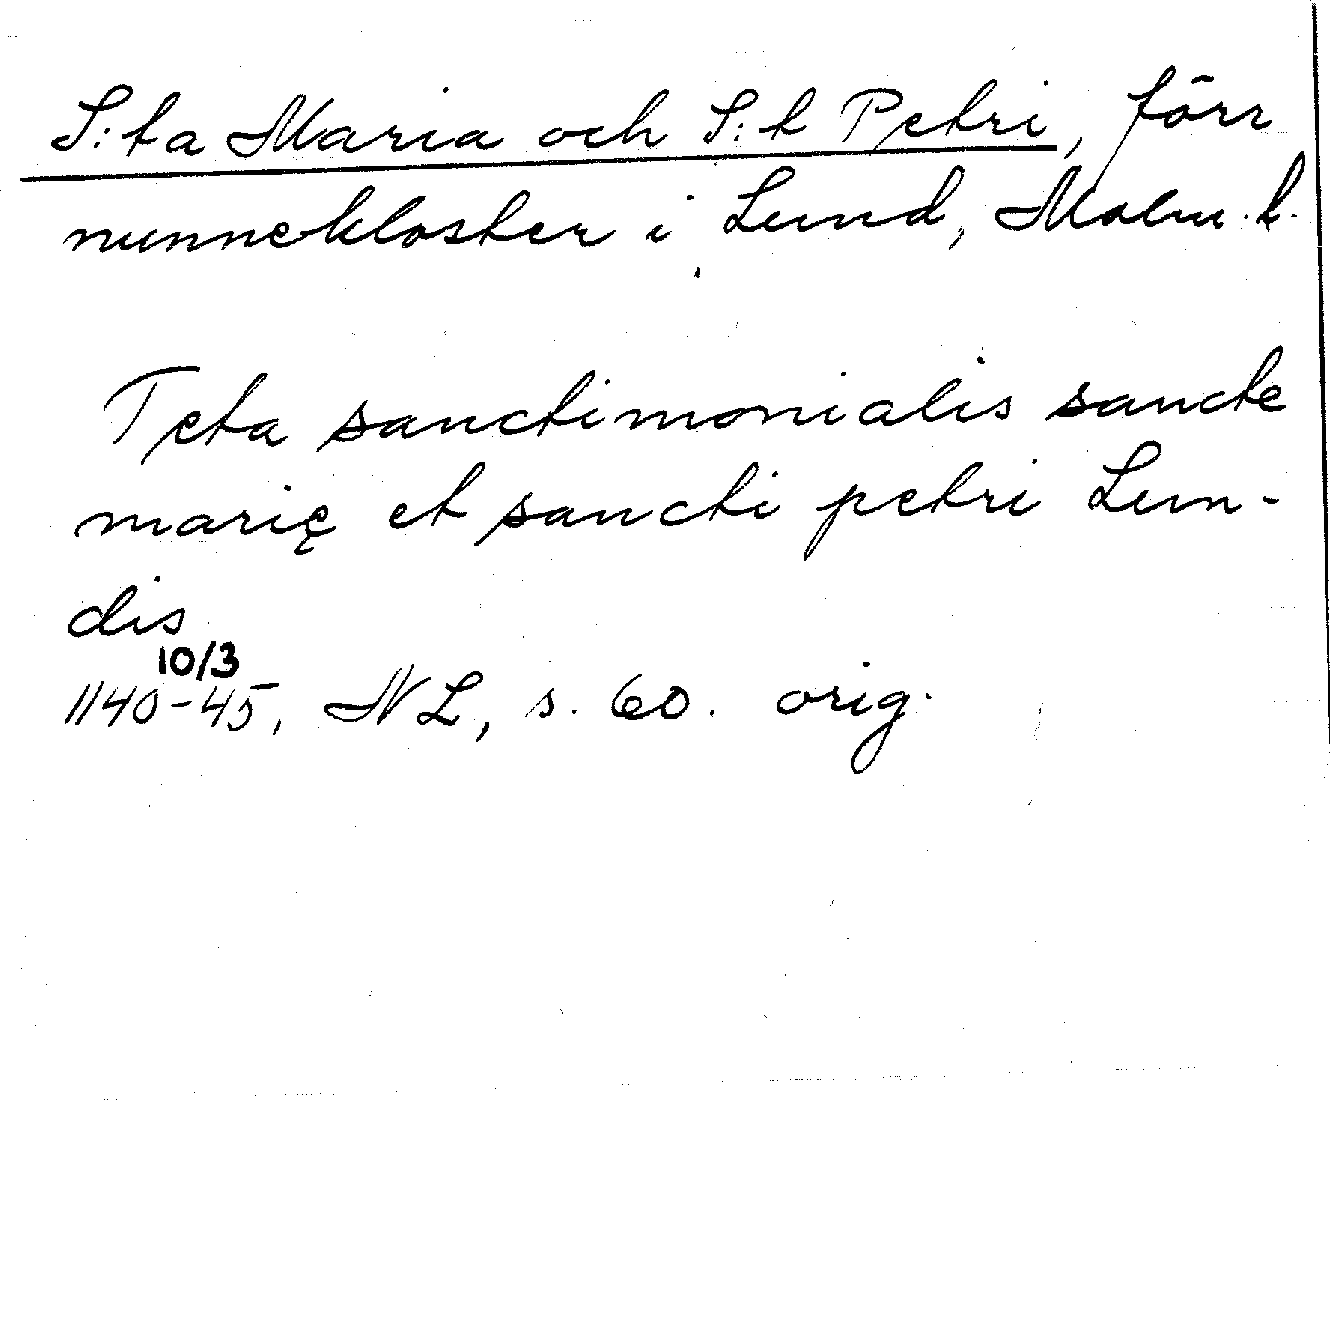 S:ta Maria och S:t Petri, förr
nunnekloster i Lund, Malm. l.
Teta sanctimonialis sancte
marię et sancti petri Lun-
dis
10/3
1140-45, NL, s. 60. orig.